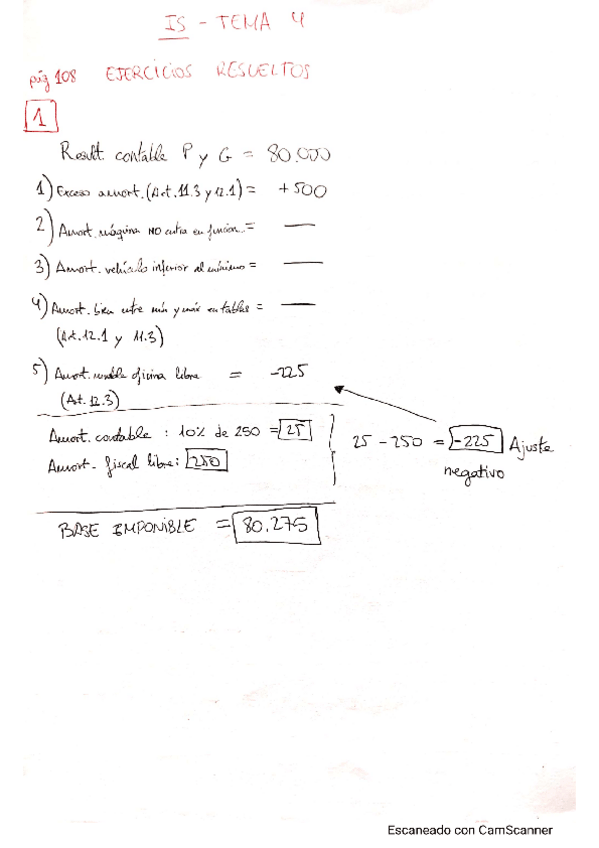 IS - TEMA 4
pág 108 EJERCICIOS RESUELTOS
1
Result. contable P y G = 80.000
1) Exceso amort. (Art. 11.3 y 12.1) = +500
2) Amort. máquina NO entra en funcion. = —
3) Amort. vehículo inferior al mínimo = —
4) Amort. bien entre mín y máx en tablas = —
(Art. 12.1 y 11.3)
5) Amort. mueble oficina libre = -225
(Art. 12.3)
Amort. contable : 10% de 250 = 25
Amort. fiscal libre: 250
25 - 250 = -225 Ajuste
negativo
BASE IMPONIBLE = 80.275
Escaneado con CamScanner